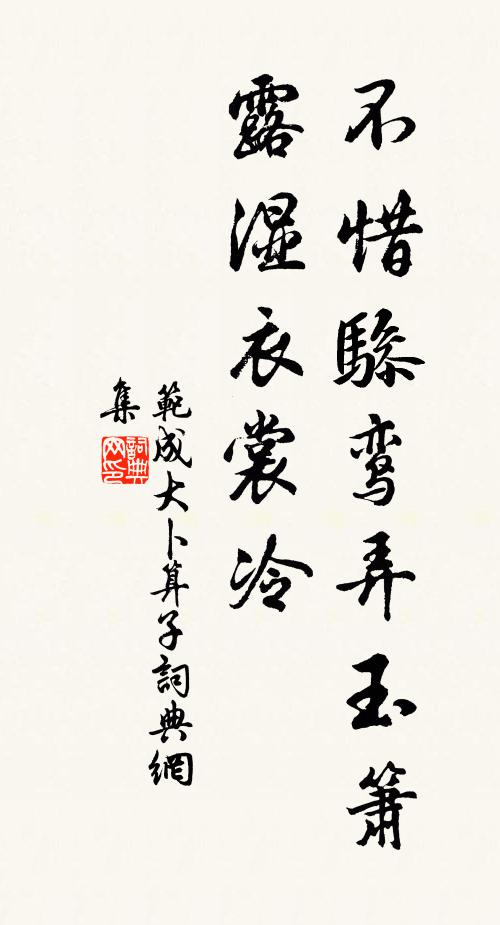 不惜驂鸾弄玉箫
露湿衣裳冷
範成大卜算子詞典網
集
詞典网印